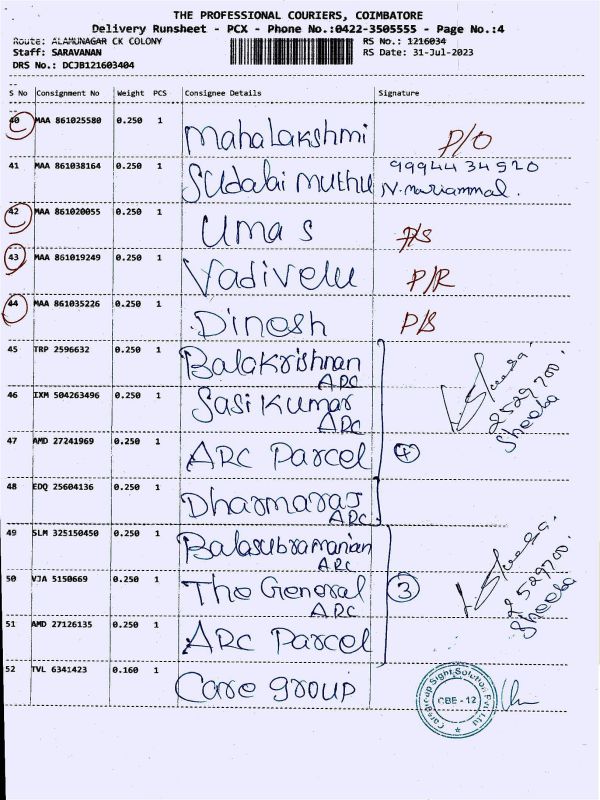 THE PROFESSIONAL COURIERS, COIMBATORE
Delivery Runsheet - PCX - Phone No.:0422-3505555 - Page No.:4
Route: ALAMUNAGAR CK COLONY RS No.: 1216034
Staff: SARAVANAN RS Date: 31-Jul-2023
DRS No.: DCJB121603404
S No Consignment No Weight PCS Consignee Details Signature
40 MAA 861025580 0.250 1 Mahalakshmi P/O
41 MAA 861038164 0.250 1 Sudalai muthu 9994434520
N. Mariammal.
42 MAA 861020055 0.250 1 Uma S P/S
43 MAA 861019249 0.250 1 Vadivelu P/R
44 MAA 861035226 0.250 1 Dinesh P/B
45 TRP 2596632 0.250 1 Balakrishnan
ARC
46 IXM 504263496 0.250 1 Sasi Kumar
ARC
2529700.
Sheeba
47 AMD 27241969 0.250 1 ARC Parcel 4
48 EDQ 25604136 0.250 1 Dharmaraj
ARC
49 SLM 325150450 0.250 1 Balasubramanian
ARC
50 VJA 5150669 0.250 1 The General 3
ARC
2529700.
Sheeba
51 AMD 27126135 0.250 1 ARC Parcel
52 TVL 6341423 0.160 1 Care group
Caregroup Sight Solution Pvt Ltd
CBE - 12